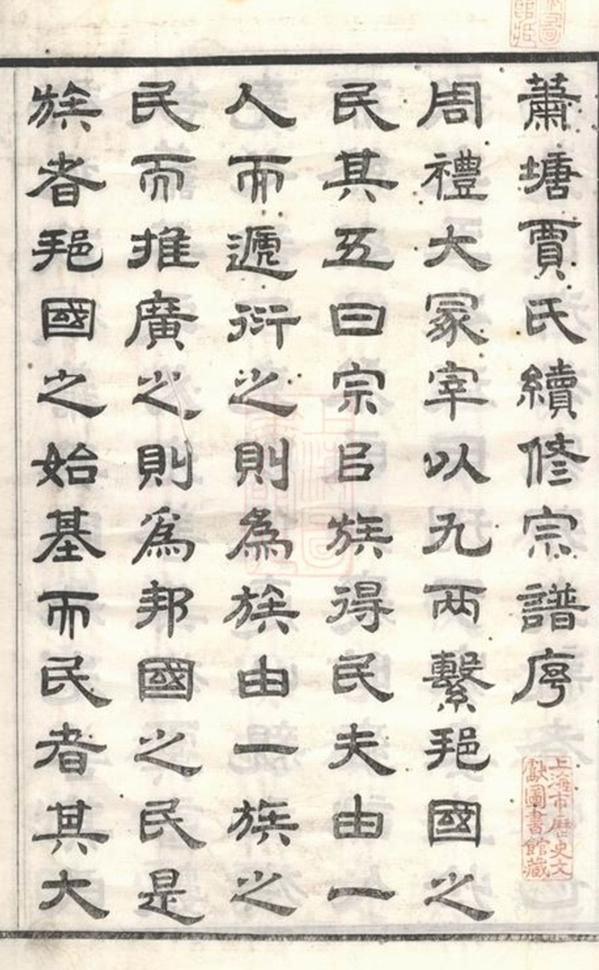 蕭塘賈氏續修宗譜序
周禮大冢宰以九兩繫邦國之
民其五曰宗㠯族得民夫由一
人而遞衍之則為族由一族之
民而推廣之則爲邦國之民是
族者邦國之始基而民者其大
上海市歷史文
獻圖書館藏